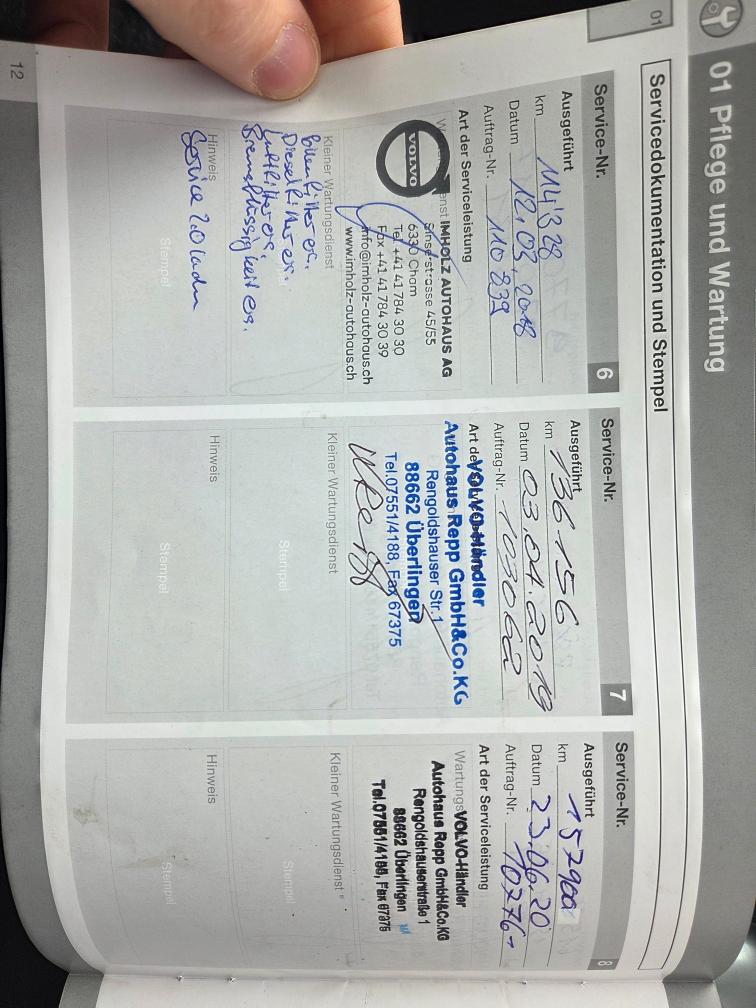 01 Pflege und Wartung
Servicedokumentation und Stempel
01
Service-Nr. 6
Ausgeführt
km 114'328
Datum 12.03.2018
Auftrag-Nr. 110 839
Art der Serviceleistung
VOLVO
IMHOLZ AUTOHAUS AG
Sinserstrasse 45/55
6330 Cham
Tel +41 41 784 30 30
Fax +41 41 784 30 39
info@imholz-autohaus.ch
www.imholz-autohaus.ch
Kleiner Wartungsdienst
Pollenfilter er.
Dieselfilter er.
Luftfilter er.
Bremsflüssigkeit er.
Hinweis
Service 2.0 laden
Stempel
Service-Nr. 7
Ausgeführt
km 136 156
Datum 03.04.2019
Auftrag-Nr. 103062
VOLVO-Händler
Autohaus Repp GmbH&Co.KG
Rengoldshauser Str.1
88662 Überlingen
Tel.07551/4188, Fax 67375
Kleiner Wartungsdienst
Stempel
Hinweis
Stempel
Service-Nr. 8
Ausgeführt
km 157900
Datum 23.06.20
Auftrag-Nr.
Art der Serviceleistung
VOLVO-Händler
Autohaus Repp GmbH&Co.KG
Rengoldshauserstraße 1
88662 Überlingen
Tel.07551/4188, Fax 67375
Kleiner Wartungsdienst
Stempel
Hinweis
Stempel
12